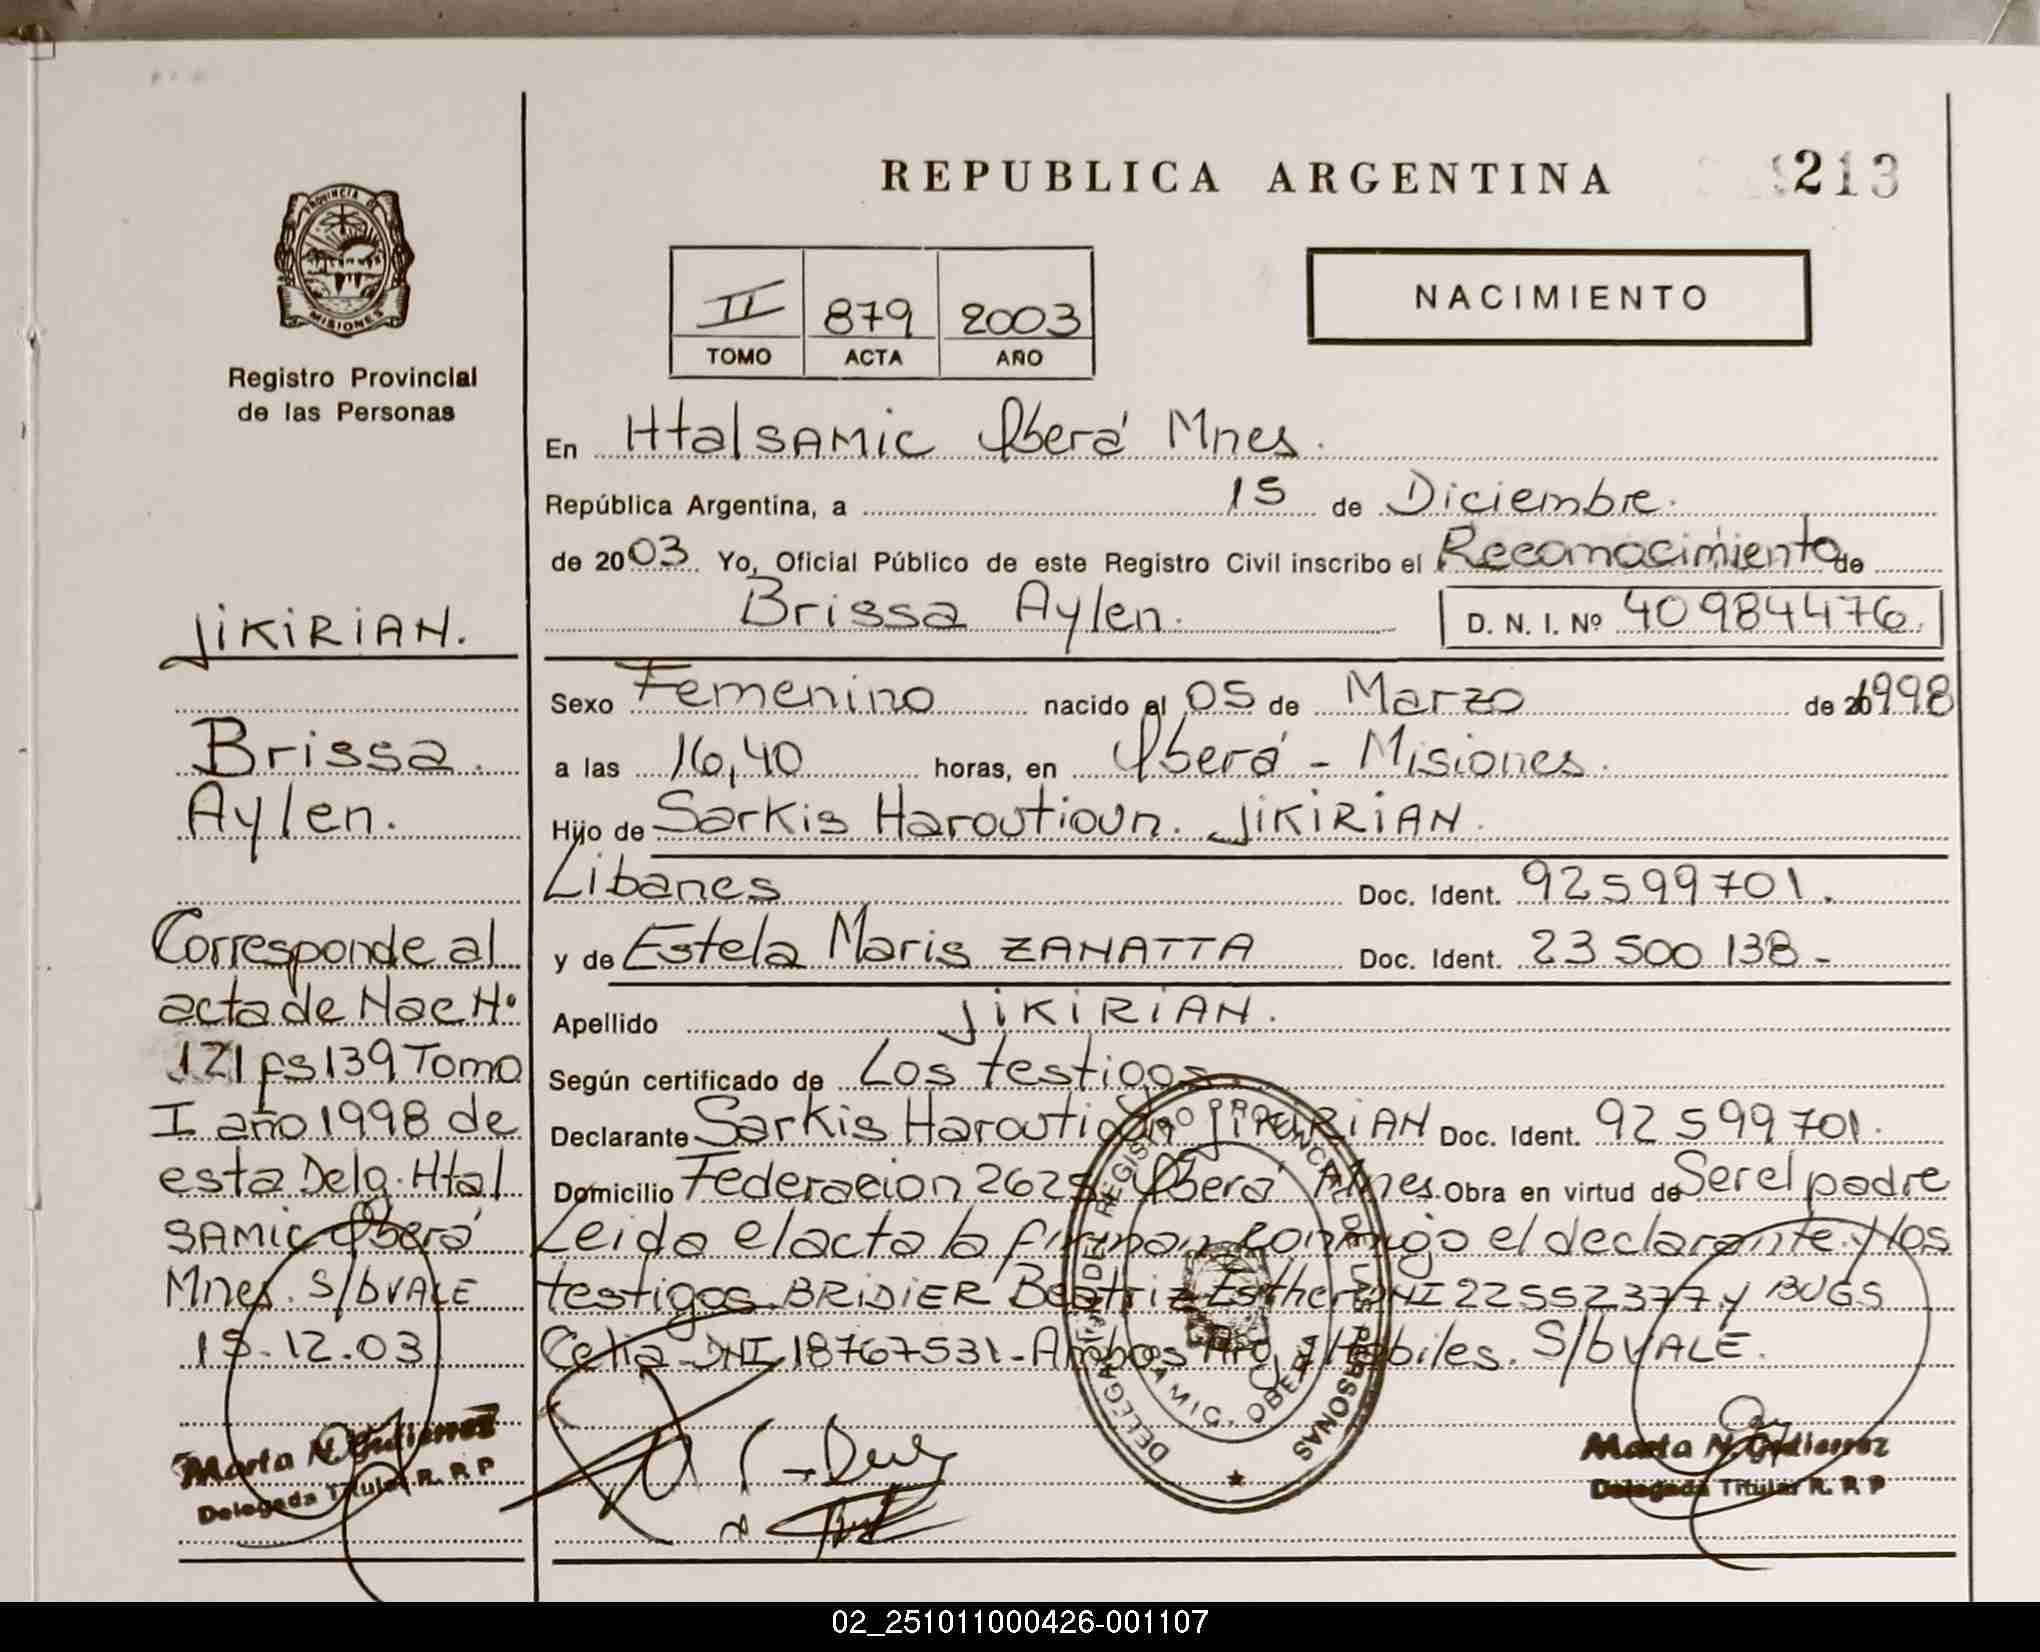 REPUBLICA ARGENTINA
213
PROVINCIA DE
MISIONES
Registro Provincial
de las Personas
II 879 2003
TOMO ACTA AÑO
NACIMIENTO
En Htal SAMIC Oberá Mnes.
República Argentina, a 15 de Diciembre.
de 2003. Yo, Oficial Público de este Registro Civil inscribo el Reconocimiento de
Brissa Aylen. D. N. I. Nº 40984476.
Sexo Femenino nacido el 05 de Marzo de 1998
a las 16,40 horas, en Oberá - Misiones.
Hijo de Sarkis Haroutioun. JIKIRIAN.
Libanes Doc. Ident. 92599701.
y de Estela Maris ZANATTA Doc. Ident. 23 500 138-
Apellido JIKIRIAN.
Según certificado de Los testigos
Declarante Sarkis Haroutioun JIKIRIAN Doc. Ident. 92 599 701.
Domicilio Federacion 2625 Oberá Mnes. Obra en virtud de Ser el padre
Leida el acta la firman conmigo el declarante y los
testigos BRIDIER Beatriz Esther DNI 22552377 y BUGS
Celia DNI 18767531- Ambos Arg y Habiles. S/b VALE.
JIKIRIAN.
Brissa.
Aylen.
Corresponde al
acta de Nac Nº
121 fs 139 Tomo
I año 1998 de
esta Delg. Htal
SAMIC Oberá
Mnes. S/b VALE
15.12.03
Marta N. Gutierrez
Delegada Titular R. P. P
DELEGACION DEL REGISTRO PROVINCIAL DE LAS PERSONAS
SAMIC. OBERA
Marta N. Gutierrez
Delegada Titular R. P. P
02_251011000426-001107